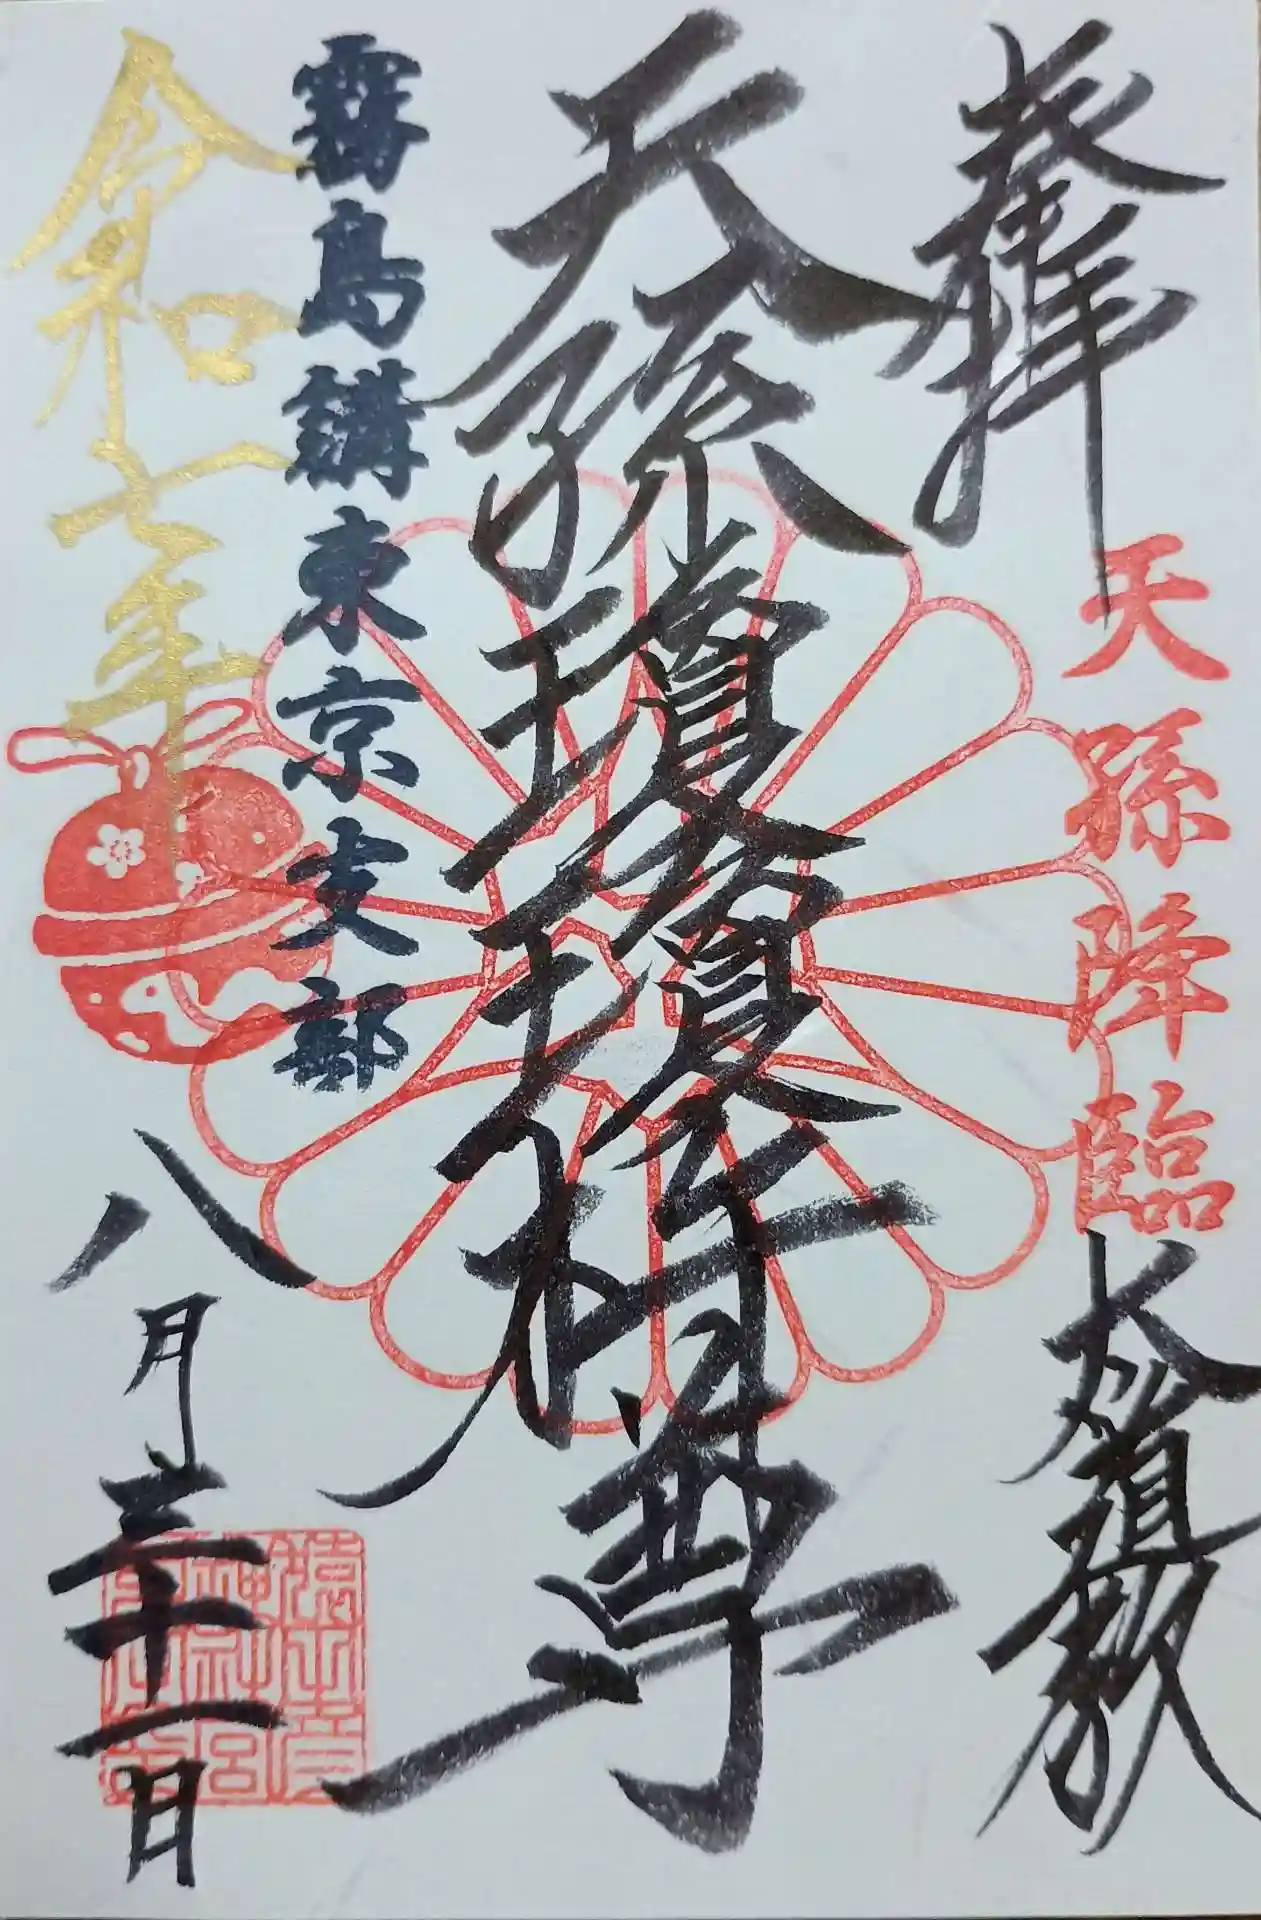 奉拝
天孫降臨
大教
天孫瓊瓊杵尊
霧島講東京支部
令和七年
八月三十一日